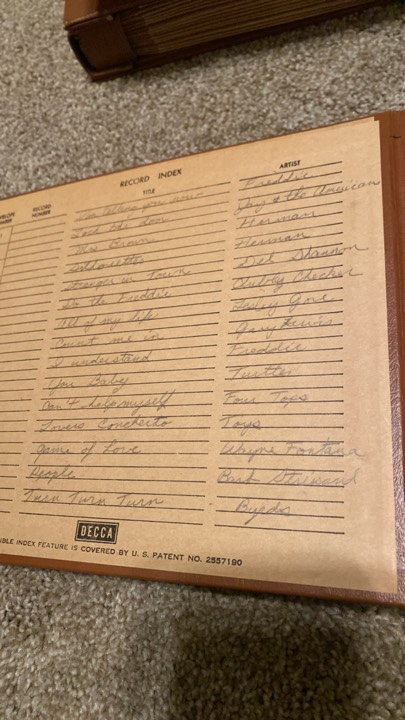 RECORD INDEX
RECORD NUMBER TITLE ARTIST
Telling you now Freddie
the Jay & the American
Mrs Brown Herman
Silhouettes Herman
Stranger in Town Del Shannon
Do the Freddie Chubby Checker
All of my life Lesley Gore
Count me in Gary Lewis
I understand Freddie
You Baby Turtles
Can't help myself Four Tops
Lovers Concherto Toys
Game of Love Wayne Fontana
People Barb
Turn Turn Turn Byrds
DECCA
IBLE INDEX FEATURE IS COVERED BY U. S. PATENT NO. 2557190